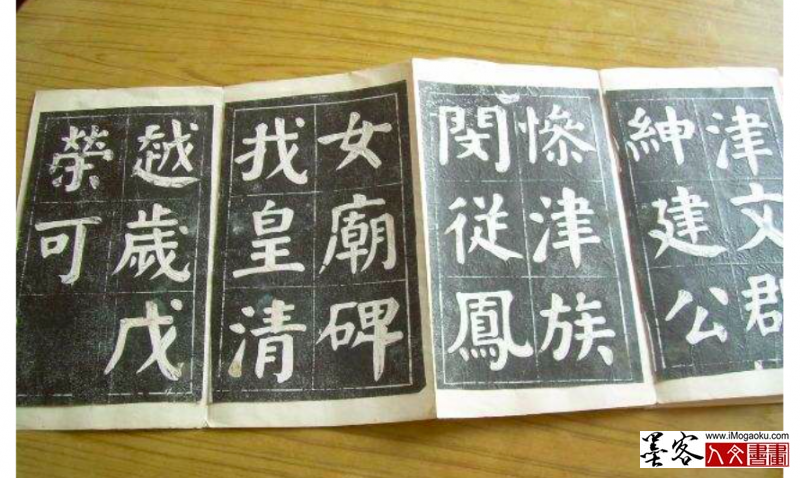 津文群
紳建公
慘津族
閔從鳳
女廟碑
我皇清
越歲戊
榮可
墨客
www.iMogaoku.com
人文書畫